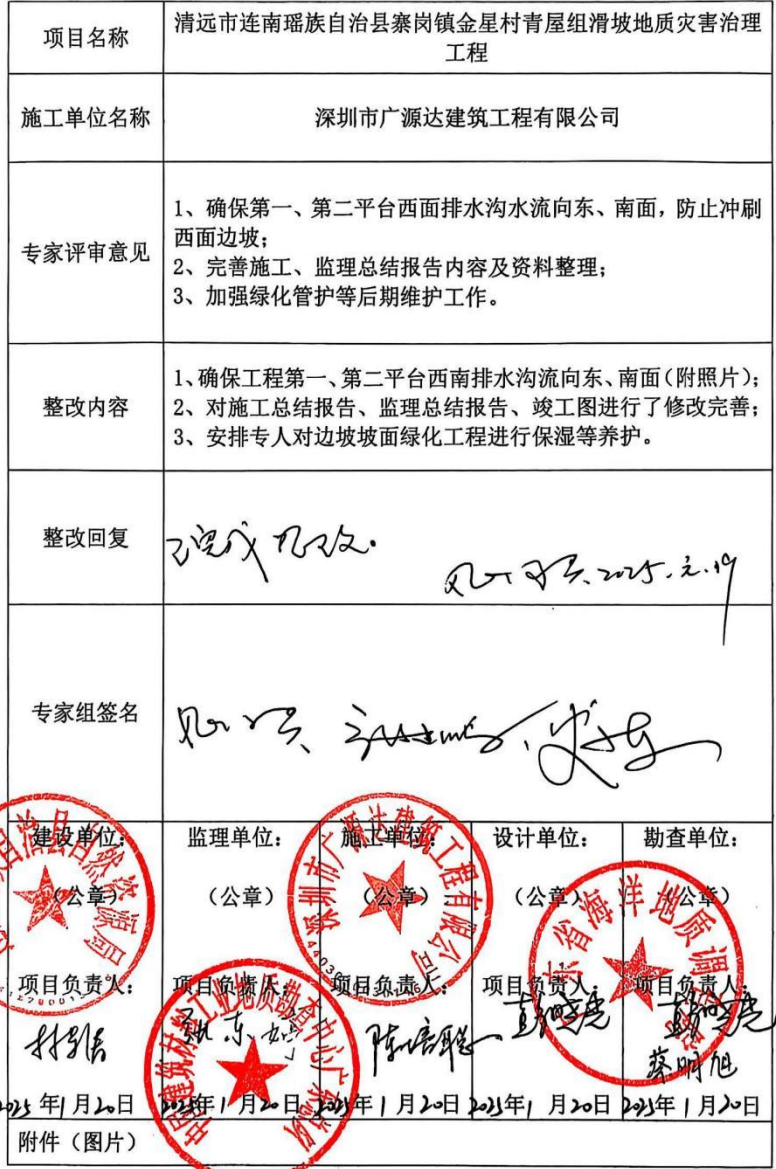 项目名称
清远市连南瑶族自治县寨岗镇金星村青屋组滑坡地质灾害治理
工程
施工单位名称
深圳市广源达建筑工程有限公司
专家评审意见
1、确保第一、第二平台西面排水沟水流向东、南面，防止冲刷
西面边坡；
2、完善施工、监理总结报告内容及资料整理；
3、加强绿化管护等后期维护工作。
整改内容
1、确保工程第一、第二平台西南排水沟流向东、南面（附照片）；
2、对施工总结报告、监理总结报告、竣工图进行了修改完善；
3、安排专人对边坡坡面绿化工程进行保湿等养护。
整改回复
已完成
2025.元.19
专家组签名
建设单位：
监理单位：
施工单位：
设计单位：
勘查单位：
（公章）
（公章）
（公章）
（公章）
（公章）
自治县自然资源局
深圳市广源达建筑工程有限公司
省海洋地质调
中国建筑材料工业地质勘查中心广东总队
项目负责人：
项目负责人：
项目负责人：
项目负责人：
项目负责人：
蔡明旭
2025年1月20日
2025年1月20日
2025年1月20日
2025年1月20日
2025年1月20日
附件（图片）